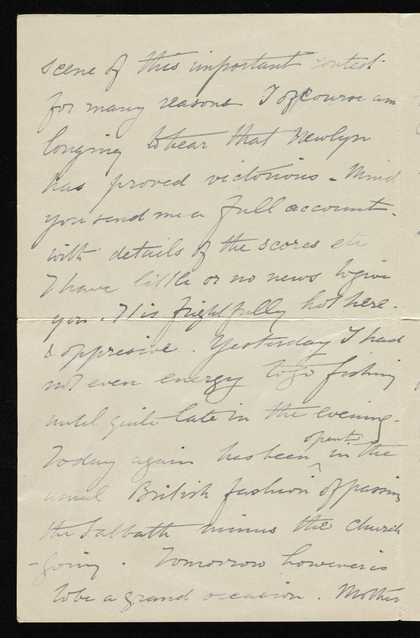 scene of this important contest
for many reasons I of course am
longing to hear that Newlyn
has proved victorious - Mind
you send me a full account.
with details of the scores etc
I have little or no news to give
you. It is frightfully hot here.
& oppresive. Yesterday I had
not even energy to go fishing
until quite late in the evening.
Today again has been spent in the
usual British fashion of passing
the Sabbath minus the church
-going. Tomorrow however is
to be a grand occasion. Mother